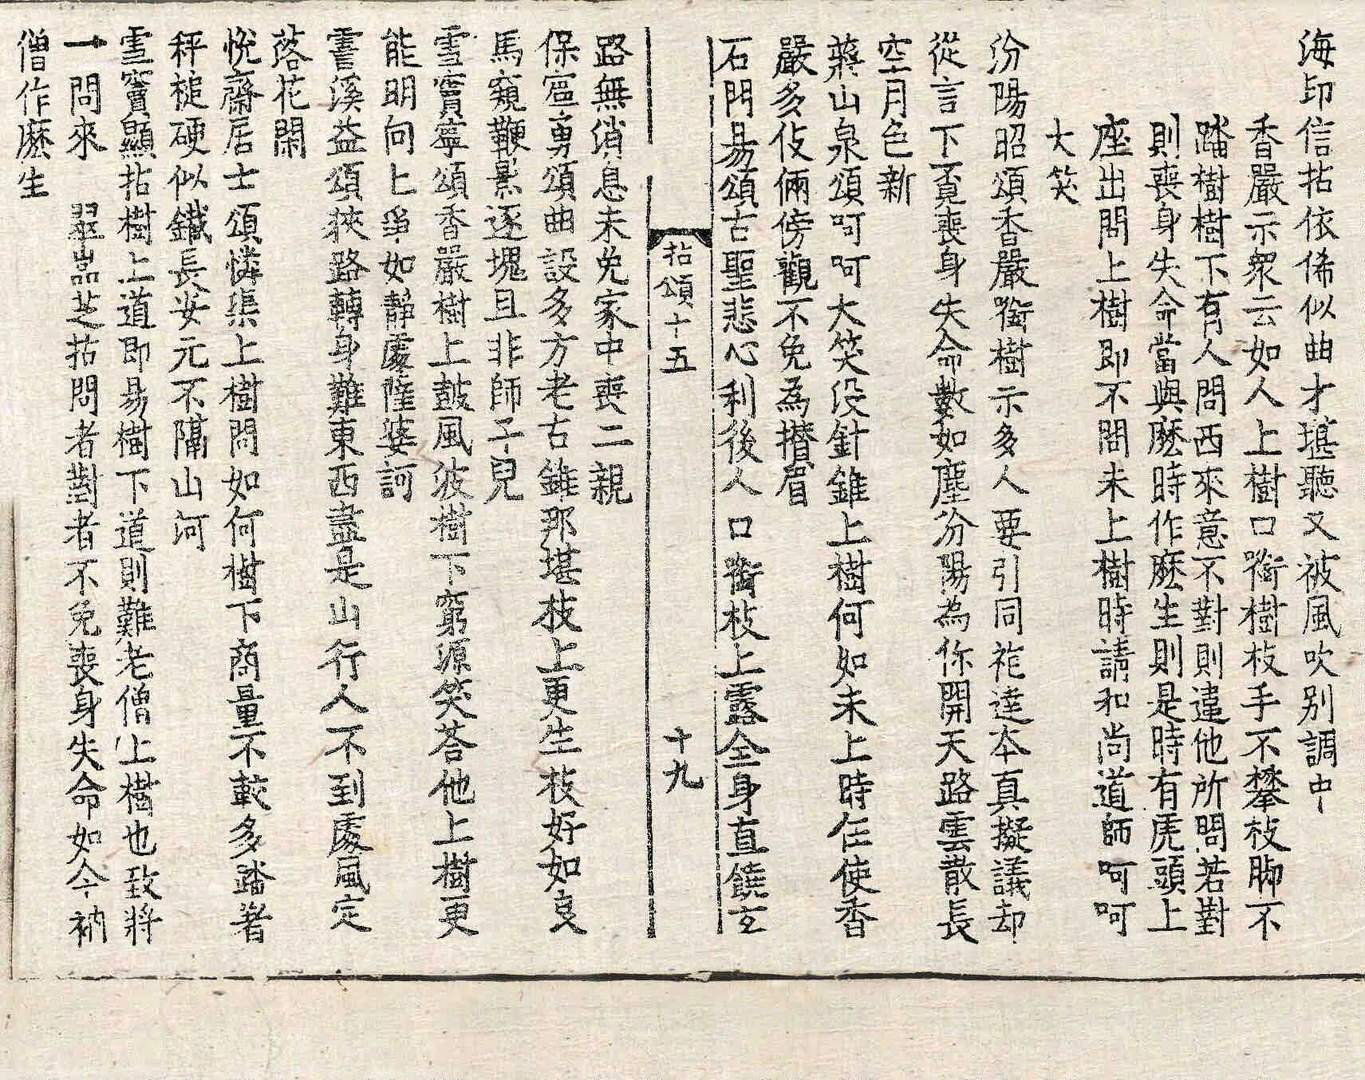 海印信拈依俙似曲才堪聽又被風吹別調中
香嚴示衆云如人上樹口㘅樹枝手不攀枝脚不
踏樹樹下有人問西來意不對則違他所問若對
則喪身失命當與麽時作麽生則是時有虎頭上
座出問上樹即不問未上樹時請和尚道師呵呵
大笑
汾陽昭頌香嚴㘅樹示多人要引同袍達本真擬議却
從言下覓喪身失命數如塵汾陽為你開天路雲散長
空月色新
蔣山泉頌呵呵大笑没針錐上樹何如未上時任使香
嚴多伎倆傍觀不免為攢眉
石門易頌古聖悲心利後人口㘅枝上露全身直饒玄
拈頌十五 十九
路無消息未免家中喪二親
保寧勇頌曲設多方老古錐那堪枝上更生枝好如良
馬窺鞭影逐塊且非師子兒
雪竇寧頌香嚴樹上鼓風波樹下窮源笑荅他上樹更
能明向上爭如靜處薩婆訶
霅溪益頌狹路轉身難東西盡是山行人不到處風定
落花閑
悅齋居士頌憐渠上樹問如何樹下商量不較多踏著
秤槌硬似鐵長安元不隔山河
雪竇顯拈樹上道即易樹下道則難老僧上樹也致將
一問來 翠嵓芝拈問者對者不免喪身失命如今衲
僧作麽生